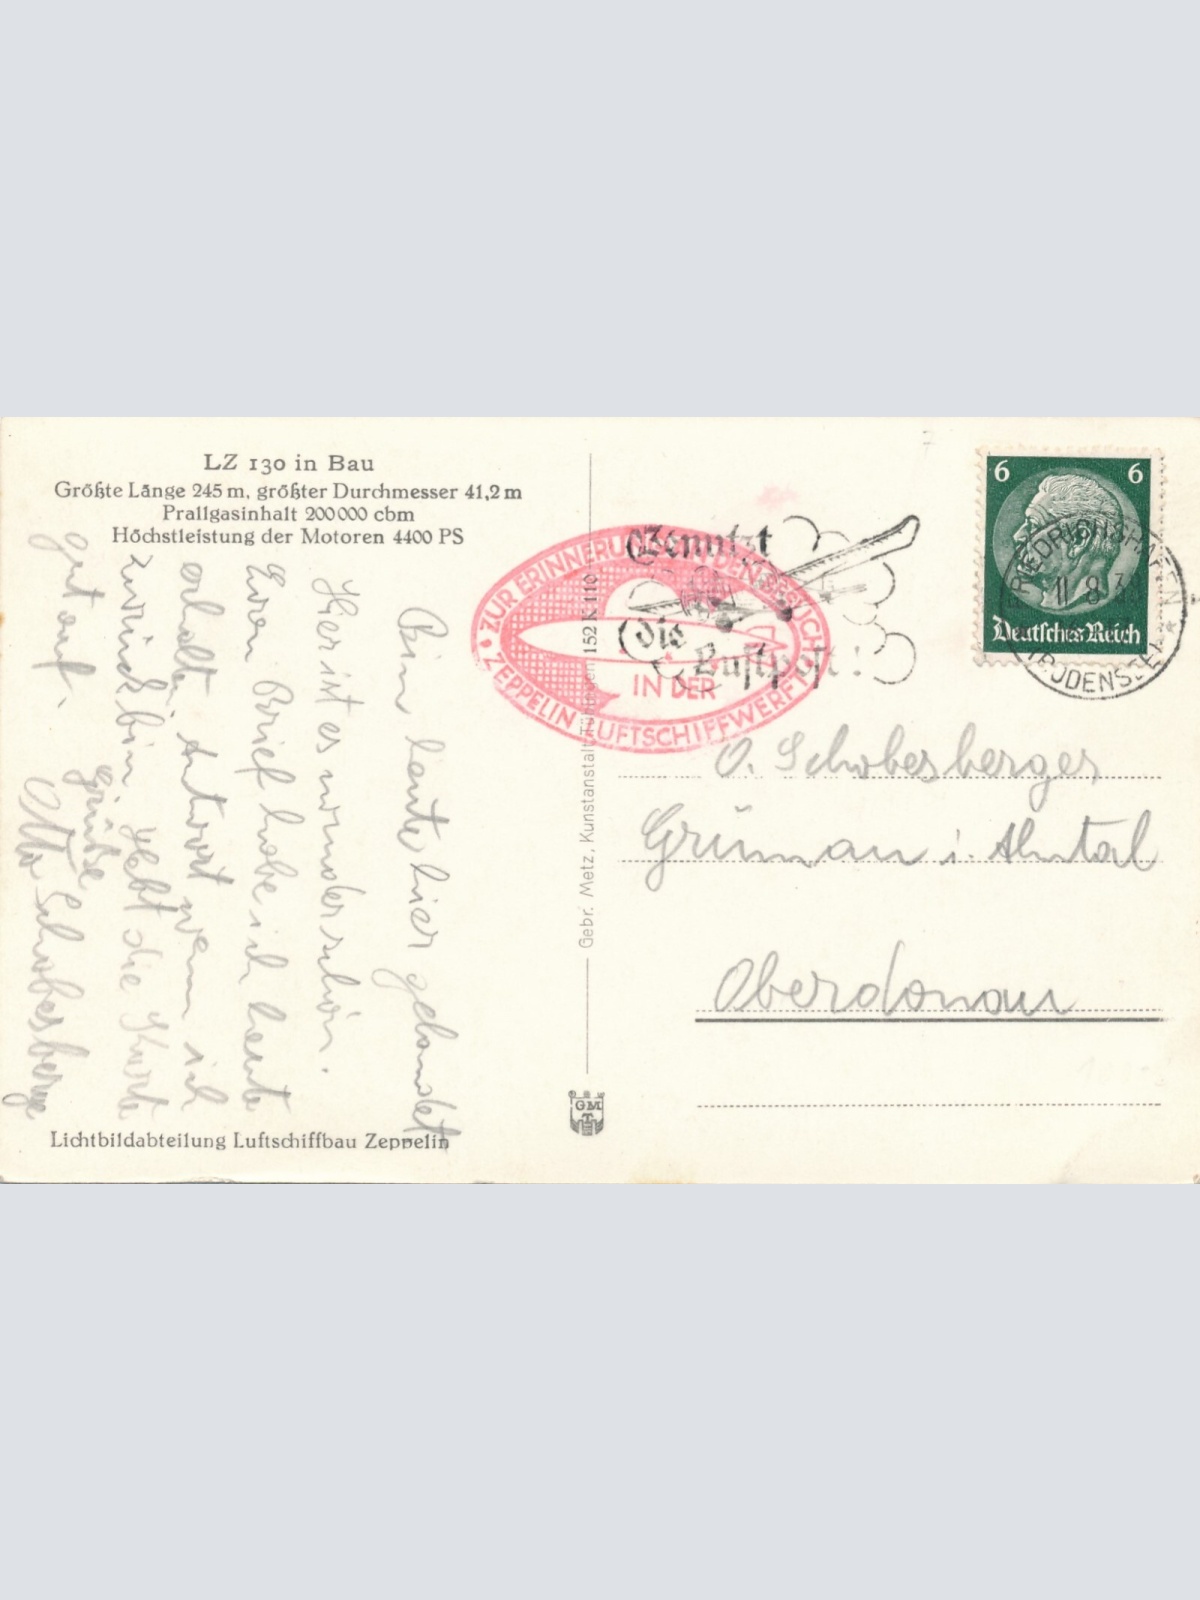 LZ 130 in Bau
Größte Länge 245 m, größter Durchmesser 41,2 m
Prallgasinhalt 200000 cbm
Höchstleistung der Motoren 4400 PS
Bin heute hier gelandet
Hier ist es wunderschön.
Euren Brief habe ich heute
erhalten. Antwort wenn ich
zurück bin. Hebt die Karte
gut auf.
Grüße
Otto Schobesberger
Lichtbildabteilung Luftschiffbau Zeppelin
Gebr. Metz, Kunstanstalt, Tübingen 152 K 110
GMT
ZUR ERINNERUNG AN DEN BESUCH
IN DER
ZEPPELIN LUFTSCHIFFWERFT
Benutzt
die
Luftpost!
6 6
Deutsches Reich
FRIEDRICHSHAFEN
11 8 38
(BODENSEE)
O. Schobesberger
Grünau i. Almtal
Oberdonau